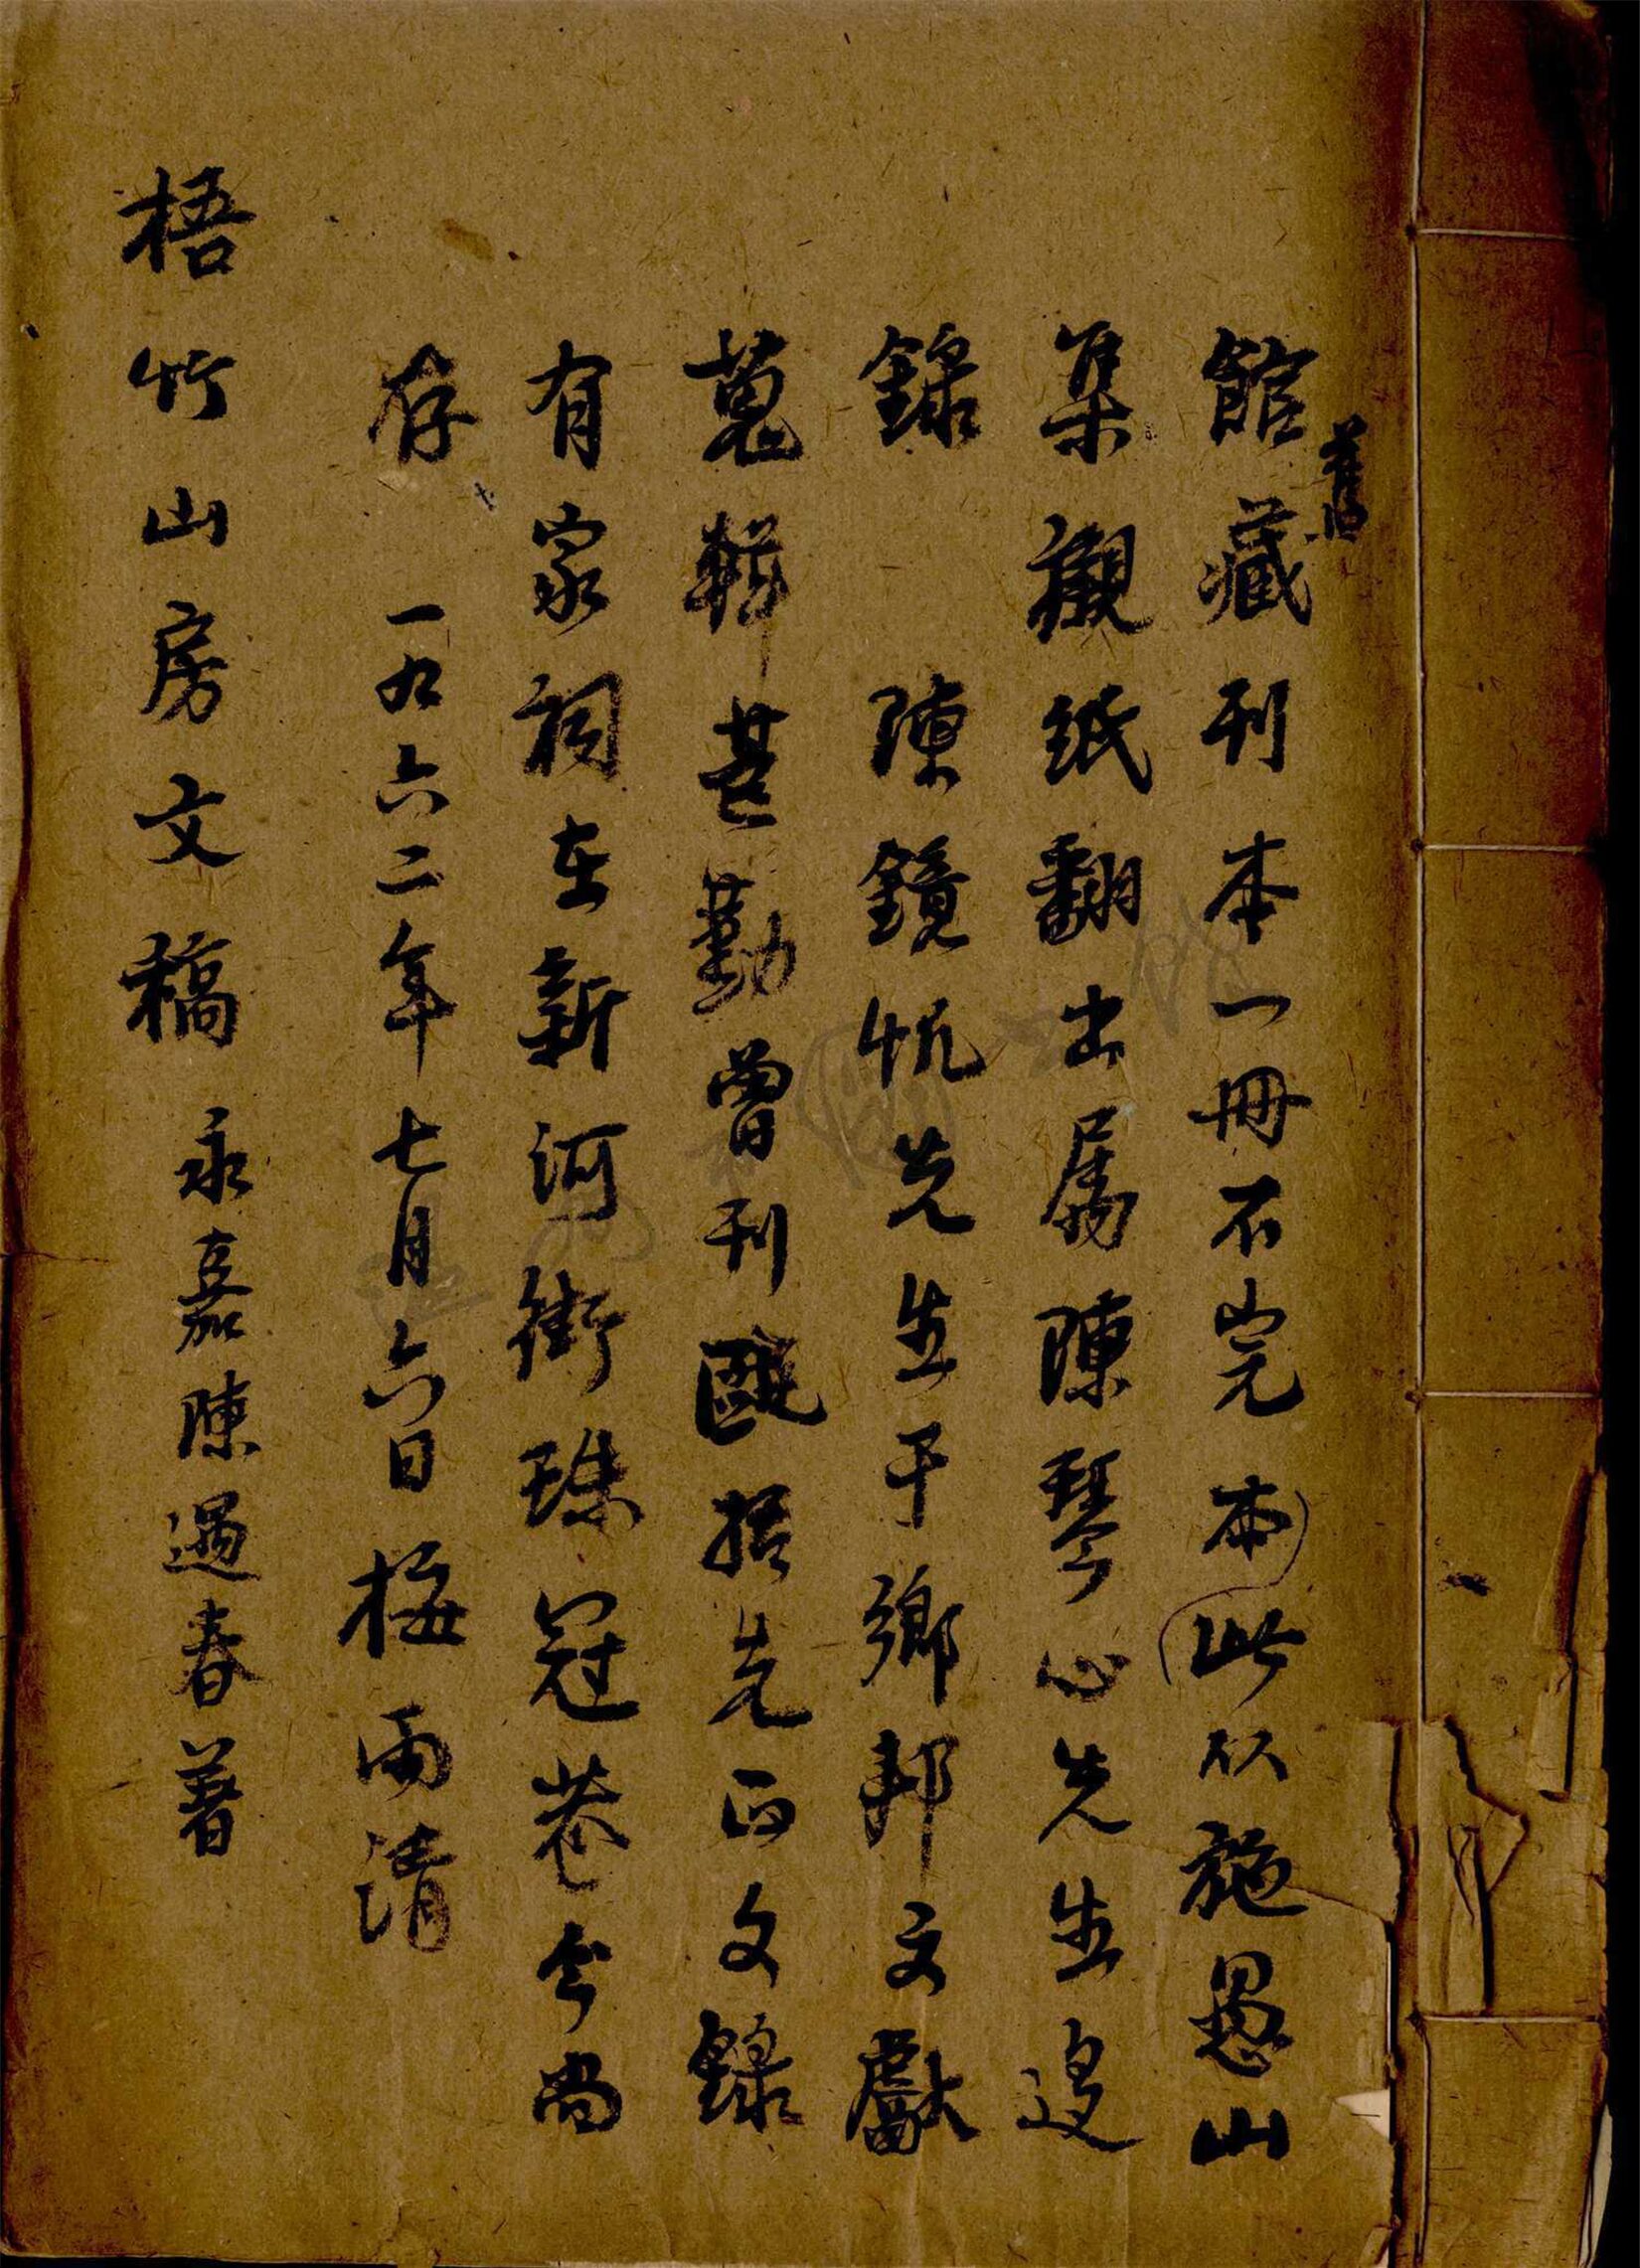 舊
館藏刊本一冊不完本(此从施愚山
集襯紙翻出屬陳琴心先生邊
錄 陳鏡帆先生于鄉邦文獻
蒐輯甚勤曾刊甌括先正文錄
有家祠在新河街珠冠巷今尚
存 一九六二年七月六日梅雨清
梧竹山房文稿 永嘉陳遇春著